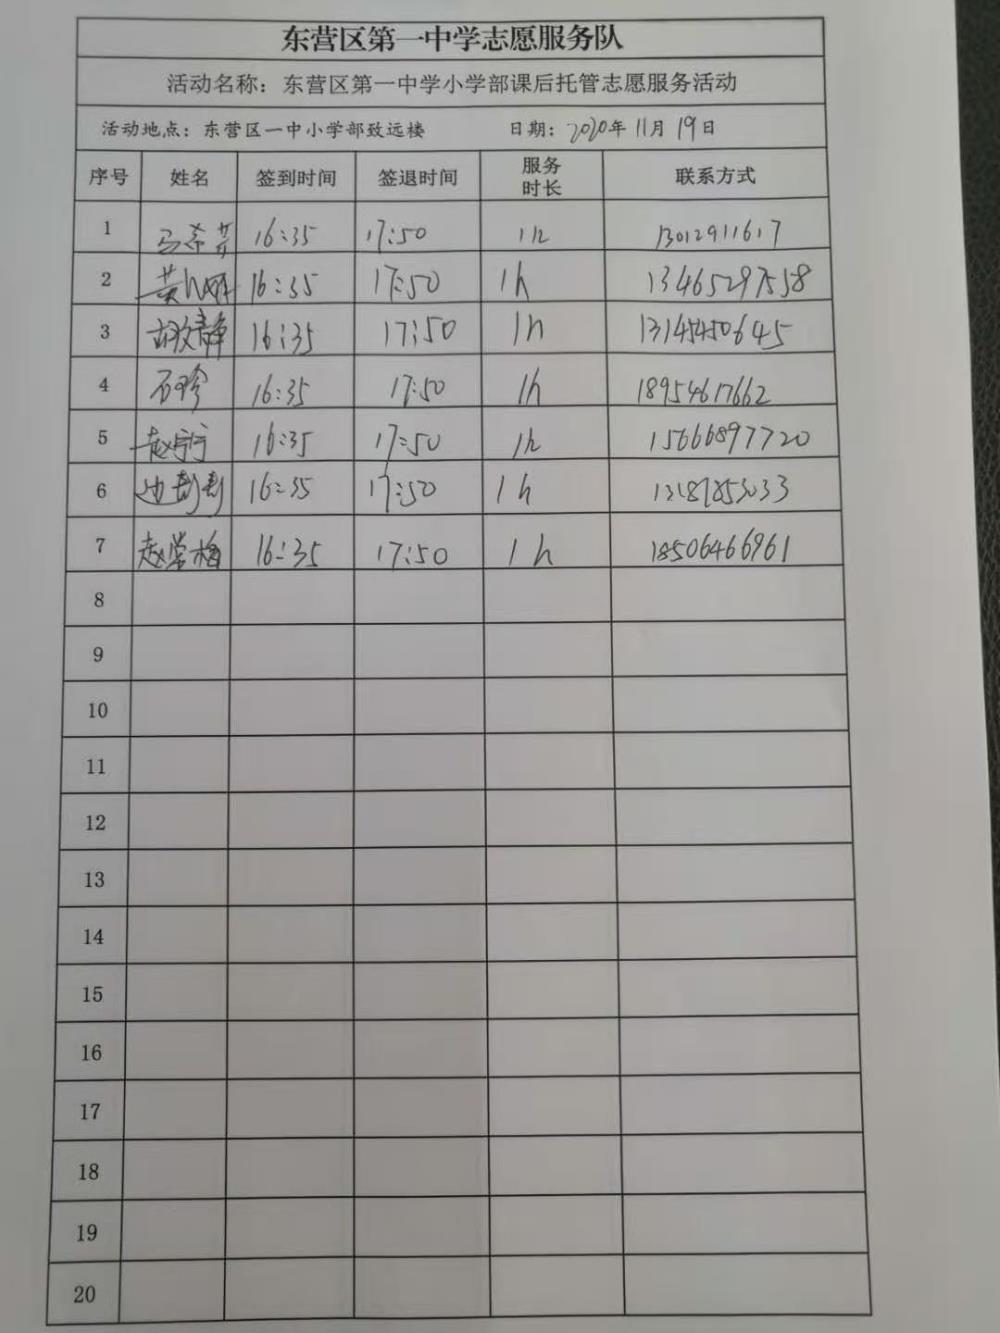 东营区第一中学志愿服务队
活动名称：东营区第一中学小学部课后托管志愿服务活动
活动地点：东营区一中小学部致远楼 日期：2020年11月19日
序号 姓名 签到时间 签退时间 服务时长 联系方式
1 16:35 17:50 1h 13012911617
2 16:35 17:50 1h 13465297558
3 胡文静 16:35 17:50 1h 13145450645
4 石珍 16:35 17:50 1h 18954617662
5 赵宁宁 16:35 17:50 1h 15666897720
6 16:35 17:50 1h
7 赵常梅 16:35 17:50 1h 18506466961
8
9
10
11
12
13
14
15
16
17
18
19
20